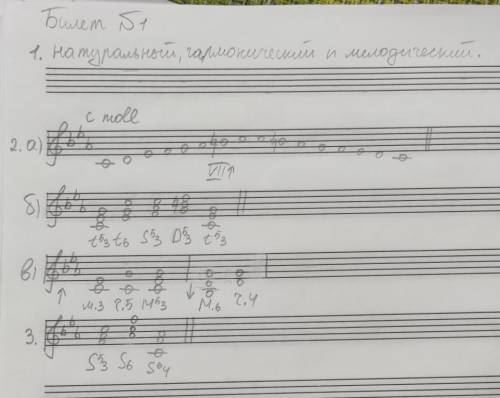 Билет Б1
1. натуральный, гармонический и мелодический.
c moll
2. а)
VII↑
б)
t5/3 t6 S5/3 D5/3 t5/3
в)
↑ м.3 ч.5 М5/3 ↓ м.6 ч.4
3.
S5/3 S6 S6/4